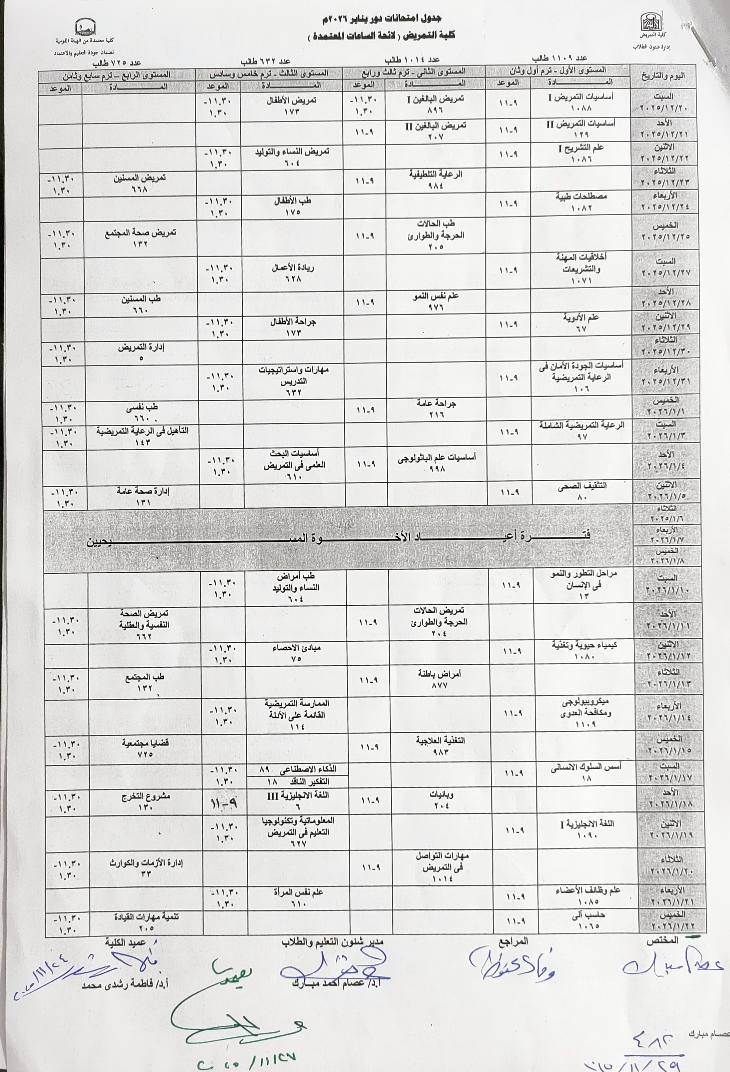 جدول امتحانات دور يناير ٢٠٢٦م
كلية التمريض ( لائحة الساعات المعتمدة )
كلية التمريض
إدارة شئون الطلاب
كلية معتمدة من الهيئة القومية
لضمان جودة التعليم والاعتماد
عدد ١١٠٩ طالب
عدد ١٠١٤ طالب
عدد ٦٣٢ طالب
عدد ٧٢٥ طالب
اليوم والتاريخ
المستوى الأول - ترم أول وثان
المستوى الثانى - ترم ثالث ورابع
المستوى الثالث - ترم خامس وسادس
المستوى الرابع - ترم سابع وثامن
المــــادة الموعد المــــادة الموعد المــــادة الموعد المــــادة الموعد
السبت ٢٠٢٥/١٢/٢٠
أساسيات التمريض I ١٠٨٨ ٩-١١
تمريض البالغين I ٨٩٦ ١١,٣٠-١,٣٠
تمريض الأطفال ١٧٣ ١١,٣٠-١,٣٠
الأحد ٢٠٢٥/١٢/٢١
أساسيات التمريض II ١٢٩ ٩-١١
تمريض البالغين II ٢٠٧ ٩-١١
الاثنين ٢٠٢٥/١٢/٢٢
علم التشريح I ١٠٨٦ ٩-١١
تمريض النساء والتوليد ٦٠٤ ١١,٣٠-١,٣٠
الثلاثاء ٢٠٢٥/١٢/٢٣
الرعاية التلطيفية ٩٨٤ ٩-١١
تمريض المسنين ٦٦٨ ١١,٣٠-١,٣٠
الأربعاء ٢٠٢٥/١٢/٢٤
مصطلحات طبية ١٠٨٢ ٩-١١
طب الأطفال ١٧٥ ١١,٣٠-١,٣٠
الخميس ٢٠٢٥/١٢/٢٥
طب الحالات الحرجة والطوارئ ٢٠٥ ٩-١١
تمريض صحة المجتمع ١٣٢ ١١,٣٠-١,٣٠
السبت ٢٠٢٥/١٢/٢٧
أخلاقيات المهنة والتشريعات ١٠٧١ ٩-١١
ريادة الأعمال ٦٢٨ ١١,٣٠-١,٣٠
الأحد ٢٠٢٥/١٢/٢٨
علم نفس النمو ٩٧٦ ٩-١١
طب المسنين ٦٦٠ ١١,٣٠-١,٣٠
الاثنين ٢٠٢٥/١٢/٢٩
علم الأدوية ٦٧ ٩-١١
جراحة الأطفال ١٧٣ ١١,٣٠-١,٣٠
الثلاثاء ٢٠٢٥/١٢/٣٠
إدارة التمريض ٥ ١١,٣٠-١,٣٠
الأربعاء ٢٠٢٥/١٢/٣١
أساسيات الجودة الأمان فى الرعاية التمريضية ١٠٦ ٩-١١
مهارات واستراتيجيات التدريس ٦٣٢ ١١,٣٠-١,٣٠
الخميس ٢٠٢٦/١/١
جراحة عامة ٢١٦ ٩-١١
طب نفسى ٦٦٠ ١١,٣٠-١,٣٠
السبت ٢٠٢٦/١/٣
الرعاية التمريضية الشاملة ٩٧ ٩-١١
التأهيل فى الرعاية التمريضية ١٤٣ ١١,٣٠-١,٣٠
الأحد ٢٠٢٦/١/٤
أساسيات علم الباثولوجى ٩٩٨ ٩-١١
أساسيات البحث العلمى فى التمريض ٦١٠ ١١,٣٠-١,٣٠
الاثنين ٢٠٢٦/١/٥
التثقيف الصحى ٨٠ ٩-١١
إدارة صحة عامة ١٣١ ١١,٣٠-١,٣٠
الثلاثاء ٢٠٢٥/١/٦
الأربعاء ٢٠٢٦/١/٧
الخميس ٢٠٢٦/١/٨
فترة أعيـــاد الأخـــوة المســـيحيين
السبت ٢٠٢٦/١/١٠
مراحل التطور والنمو فى الإنسان ١٣ ٩-١١
طب أمراض النساء والتوليد ٦٠٤ ١١,٣٠-١,٣٠
الأحد ٢٠٢٦/١/١١
تمريض الحالات الحرجة والطوارئ ٢٠٤ ٩-١١
تمريض الصحة النفسية والعقلية ٦٦٢ ١١,٣٠-١,٣٠
الاثنين ٢٠٢٦/١/١٢
كيمياء حيوية وتغذية ١٠٨٠ ٩-١١
مبادئ الاحصاء ٧٥ ١١,٣٠-١,٣٠
الثلاثاء ٢٠٢٦/١/١٣
أمراض باطنة ٨٧٧ ٩-١١
طب المجتمع ١٣٢ ١١,٣٠-١,٣٠
الأربعاء ٢٠٢٦/١/١٤
ميكروبيولوجى ومكافحة العدوى ١١٠٩ ٩-١١
الممارسة التمريضية القائمة على الأدلة ١١٤ ١١,٣٠-١,٣٠
الخميس ٢٠٢٦/١/١٥
التغذية العلاجية ٩٨٣ ٩-١١
قضايا مجتمعية ٧٢٥ ١١,٣٠-١,٣٠
السبت ٢٠٢٦/١/١٧
أسس السلوك الانسانى ١٨ ٩-١١
الذكاء الاصطناعى ٨٩
التفكير الناقد ١٨ ١١,٣٠-١,٣٠
الأحد ٢٠٢٦/١/١٨
وبائيات ٢٠٤ ٩-١١
اللغة الانجليزية III ٦ ٩-١١
مشروع التخرج ١٣٠ ١١,٣٠-١,٣٠
الاثنين ٢٠٢٦/١/١٩
اللغة الانجليزية I ١٠٩٠ ٩-١١
المعلوماتية وتكنولوجيا التعليم فى التمريض ٦٢٧ ١١,٣٠-١,٣٠
الثلاثاء ٢٠٢٦/١/٢٠
مهارات التواصل فى التمريض ١٠١٤ ٩-١١
إدارة الأزمات والكوارث ٣٣ ١١,٣٠-١,٣٠
الأربعاء ٢٠٢٦/١/٢١
علم وظائف الأعضاء ١٠٨٥ ٩-١١
علم نفس المرأة ٦١٠ ١١,٣٠-١,٣٠
الخميس ٢٠٢٦/١/٢٢
حاسب آلى ١٠٦٥ ٩-١١
تنمية مهارات القيادة ٢٠٥ ١١,٣٠-١,٣٠
المختص
المراجع
مدير شئون التعليم والطلاب
عميد الكلية
أ.د/ عصام أحمد مبارك
أ.د/ فاطمة رشدى محمد
٢٠٢٥/١١/٢٤
٢٠٢٥/١١/٢٧
عصام مبارك
٤٨٢